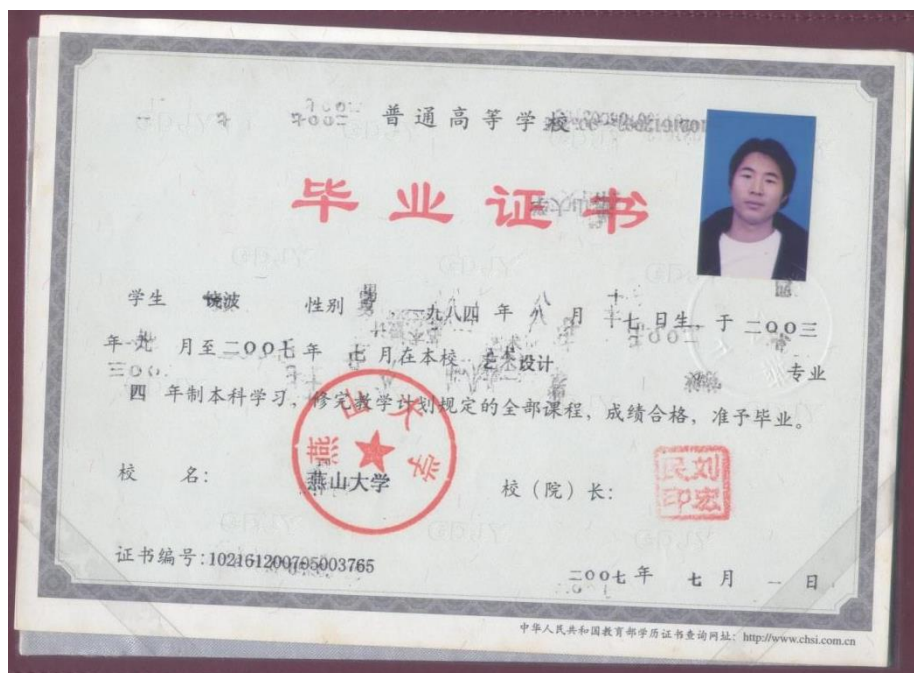 普通高等学校
毕业证书
学生 饶波 性别 男 一九八四 年 八 月 十七 日生，于 二〇〇三
年 九 月至 二〇〇七 年 七 月在本校 艺术设计 专业
四 年制本科学习，修完教学计划规定的全部课程，成绩合格，准予毕业。
校 名：燕山大学 校（院）长：刘宏民印
燕山大学
证书编号：102161200705003765
二〇〇七 年 七 月 一 日
中华人民共和国教育部学历证书查询网址：http://www.chsi.com.cn